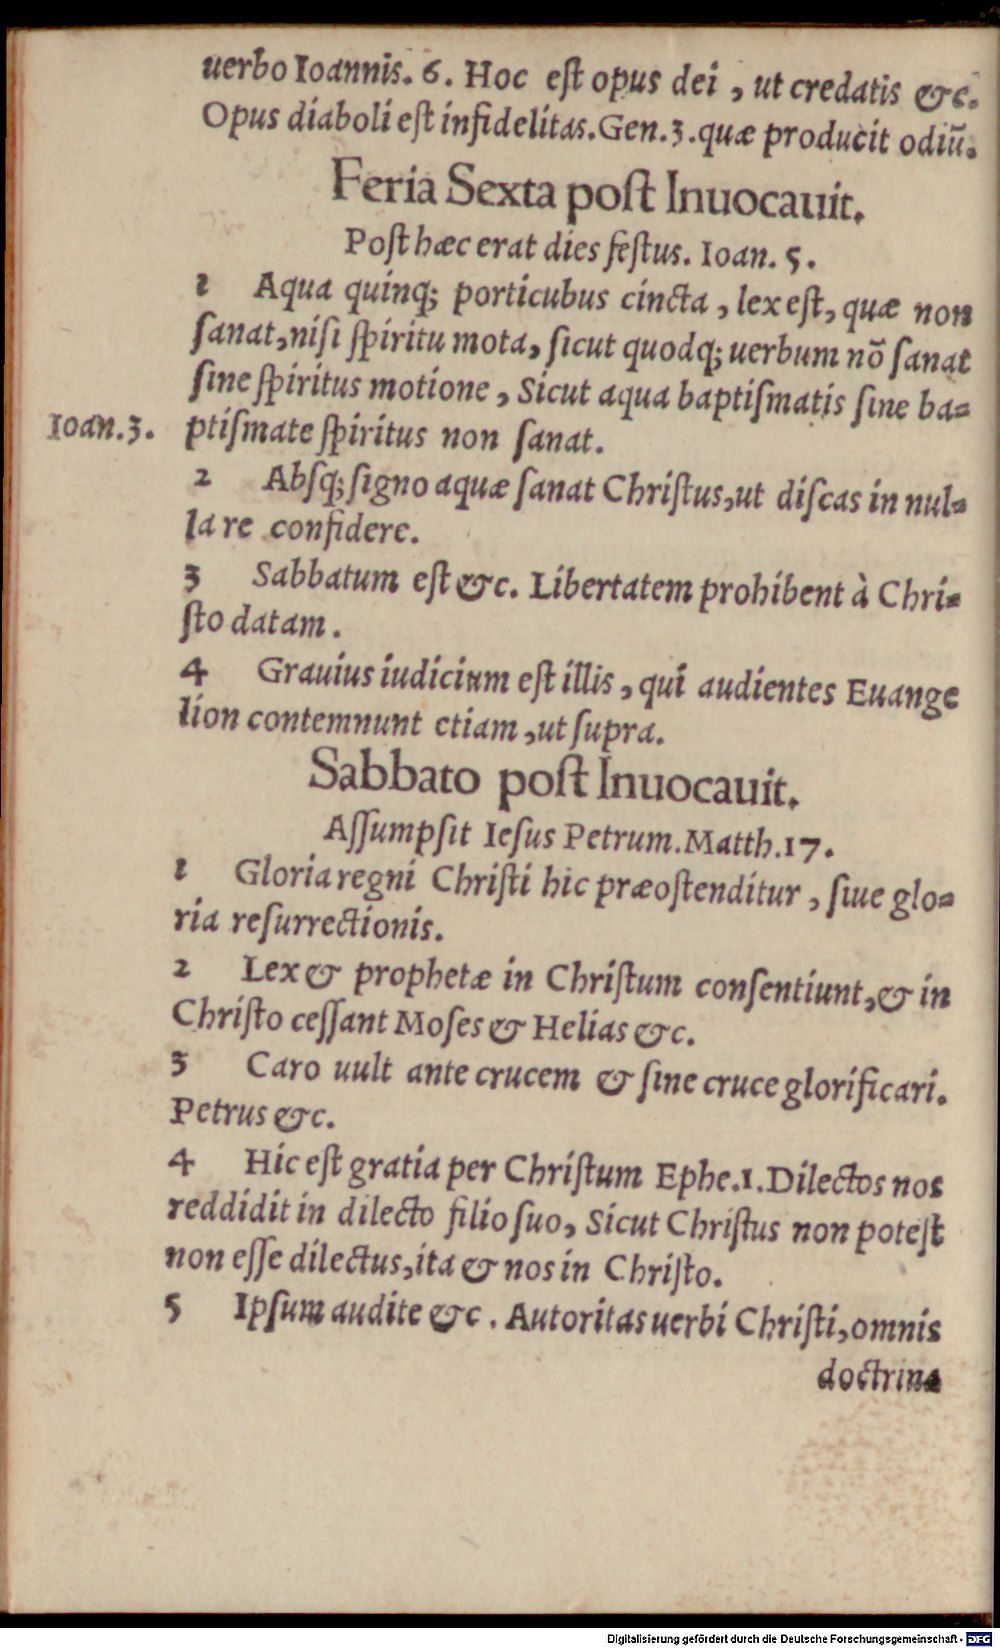 uerbo Ioannis. 6. Hoc eſt opus dei, ut credatis &c.
Opus diaboli eſt infidelitas. Gen. 3. quæ producit odiū.
Feria Sexta poſt Inuocauit.
Poſt hæc erat dies feſtus. Ioan. 5.
1 Aqua quinq; porticubus cincta, lex eſt, quæ non
ſanat, niſi ſpiritu mota, ſicut quodq; uerbum nō ſanat
ſine ſpiritus motione, Sicut aqua baptiſmatis ſine ba=
Ioan. 3. ptiſmate ſpiritus non ſanat.
2 Abſq; ſigno aquæ ſanat Chriſtus, ut diſcas in nul=
la re confidere.
3 Sabbatum eſt &c. Libertatem prohibent à Chri=
ſto datam.
4 Grauius iudicium eſt illis, qui audientes Euange
lion contemnunt etiam, ut ſupra.
Sabbato poſt Inuocauit.
Aſſumpſit Ieſus Petrum. Matth. 17.
1 Gloria regni Chriſti hic præoſtenditur, ſiue glo=
ria reſurrectionis.
2 Lex & prophetæ in Chriſtum conſentiunt, & in
Chriſto ceſſant Moſes & Helias &c.
3 Caro uult ante crucem & ſine cruce glorificari.
Petrus &c.
4 Hic eſt gratia per Chriſtum Ephe. 1. Dilectos nos
reddidit in dilecto filio ſuo, Sicut Chriſtus non poteſt
non eſſe dilectus, ita & nos in Chriſto.
5 Ipſum audite &c. Autoritas uerbi Chriſti, omnis
doctrina
Digitalisierung gefördert durch die Deutsche Forschungsgemeinschaft - DFG